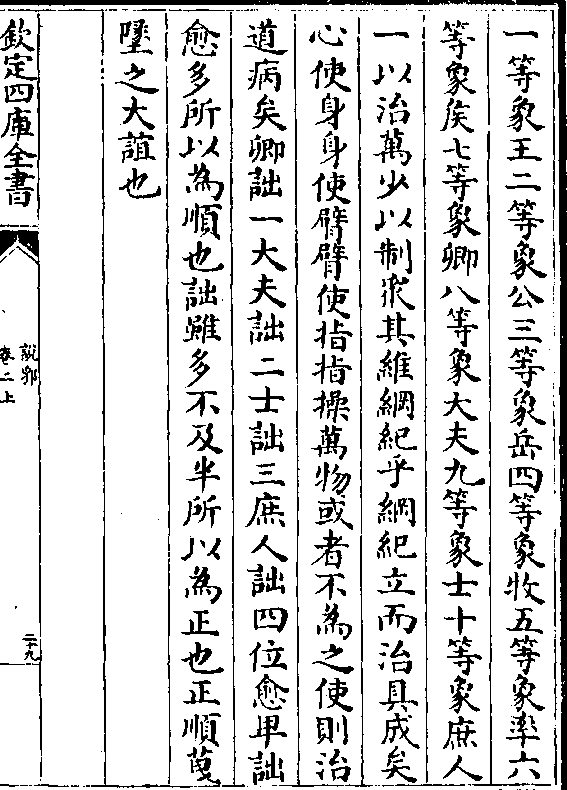 一等象王二等象公三等象岳四等象牧五等象率六
等象矦七等象卿八等象大夫九等象士十等象庶人
一以治萬少以制衆其維綱紀乎綱紀立而治具成矣
心使身身使臂臂使指指操萬物或者不為之使則治
道病矣卿詘一大夫詘二士詘三庶人詘四位愈卑詘
愈多所以為順也詘雖多不及半所以為正也正順蔑
墜之大誼也
欽定四庫全書
說郛
卷二上
二十九